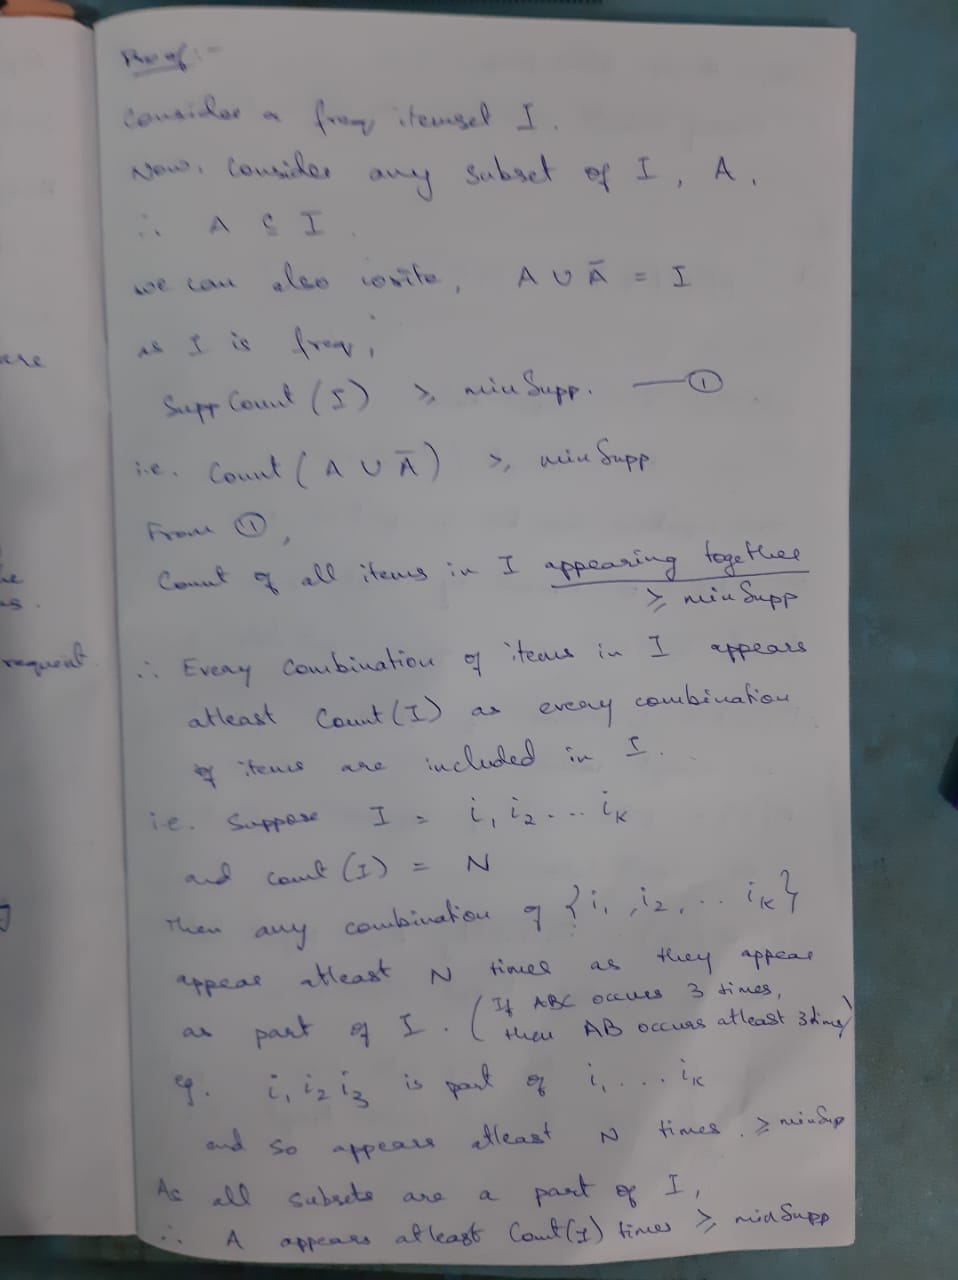 Proof :-
Consider a freq itemset I.
Now, consider any subset of I, A.
∴ A ⊆ I.
we can also write, A ∪ Ā = I
as I is freq,
Supp Count (I) ≥ minSupp. —①
i.e. Count (A ∪ Ā) ≥ minSupp
From ①,
Count of all items in I appearing together
≥ minSupp
∴ Every combination of items in I appears
atleast Count(I) as every combination
of items are included in I.
i.e. Suppose I = i₁ i₂ ... iₖ
and count (I) = N
Then any combination of {i₁, i₂, .. iₖ}
appear atleast N times as they appear
as part of I. (If ABC occurs 3 times,
then AB occurs atleast 3 times)
eg. i₁ i₂ i₃ is part of i₁ .... iₖ
and so appears atleast N times. ≥ minSup
As all subsets are a part of I,
∴ A appears atleast Count(I) times ≥ minSupp
are
he
s.
requent